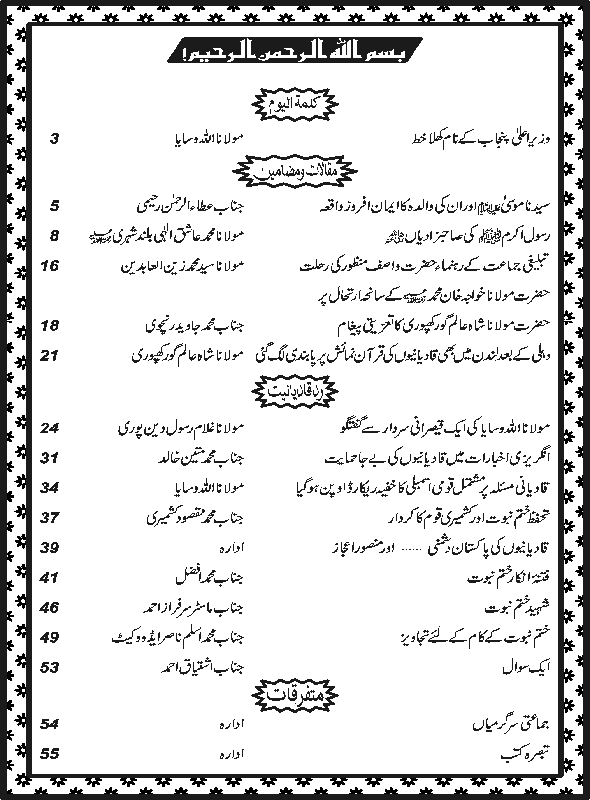 بسم اللہ الرحمن الرحیم!
کلمۃ الیوم
وزیر اعلیٰ پنجاب کے نام کھلا خط مولانا اللہ وسایا 3
مقالات ومضامین
سیدنا موسیٰ علیہ السلام اور ان کی والدہ کا ایمان افروز واقعہ جناب عطاء الرحمٰن رحیمی 5
رسول اکرم ﷺ کی صاحبزادیاں مولانا محمد عاشق الٰہی بلند شہری 8
تبلیغی جماعت کے رہنماء حضرت واصف منظور کی رحلت مولانا سید محمد زین العابدین 16
حضرت مولانا خواجہ خان محمد کے سانحہ ارتحال پر
حضرت مولانا شاہ عالم گورکھپوری کا تعزیتی پیغام جناب محمد جاوید 18
دہلی کے بعد لندن میں بھی قادیانیوں کی قرآن نمائش پر پابندی لگ گئی مولانا شاہ عالم گورکھپوری 21
رد قادیانیت
مولانا اللہ وسایا کی ایک قیصرانی سردار سے گفتگو مولانا غلام رسول دین پوری 24
انگریزی اخبارات میں قادیانیوں کی بے جا حمایت جناب محمد متین خالد 31
قادیانی مسئلہ پر مشتمل قومی اسمبلی کا خفیہ ریکارڈ اوپن ہوگیا مولانا اللہ وسایا 34
تحفظ ختم نبوت اور کشمیری قوم کا کردار جناب محمد مقصود کشمیری 37
قادیانیوں کی پاکستان دشمنی ...... اور منصور اعجاز ادارہ 39
فتنۂ انکار ختم نبوت جناب محمد افضل 41
شہید ختم نبوت جناب ماسٹر سرفراز احمد 46
ختم نبوت کے کام کے لئے تجاویز جناب محمد اسلم ناصر ایڈووکیٹ 49
ایک سوال جناب اشتیاق احمد 53
متفرقات
جماعتی سرگرمیاں ادارہ 54
تبصرہ کتب ادارہ 55